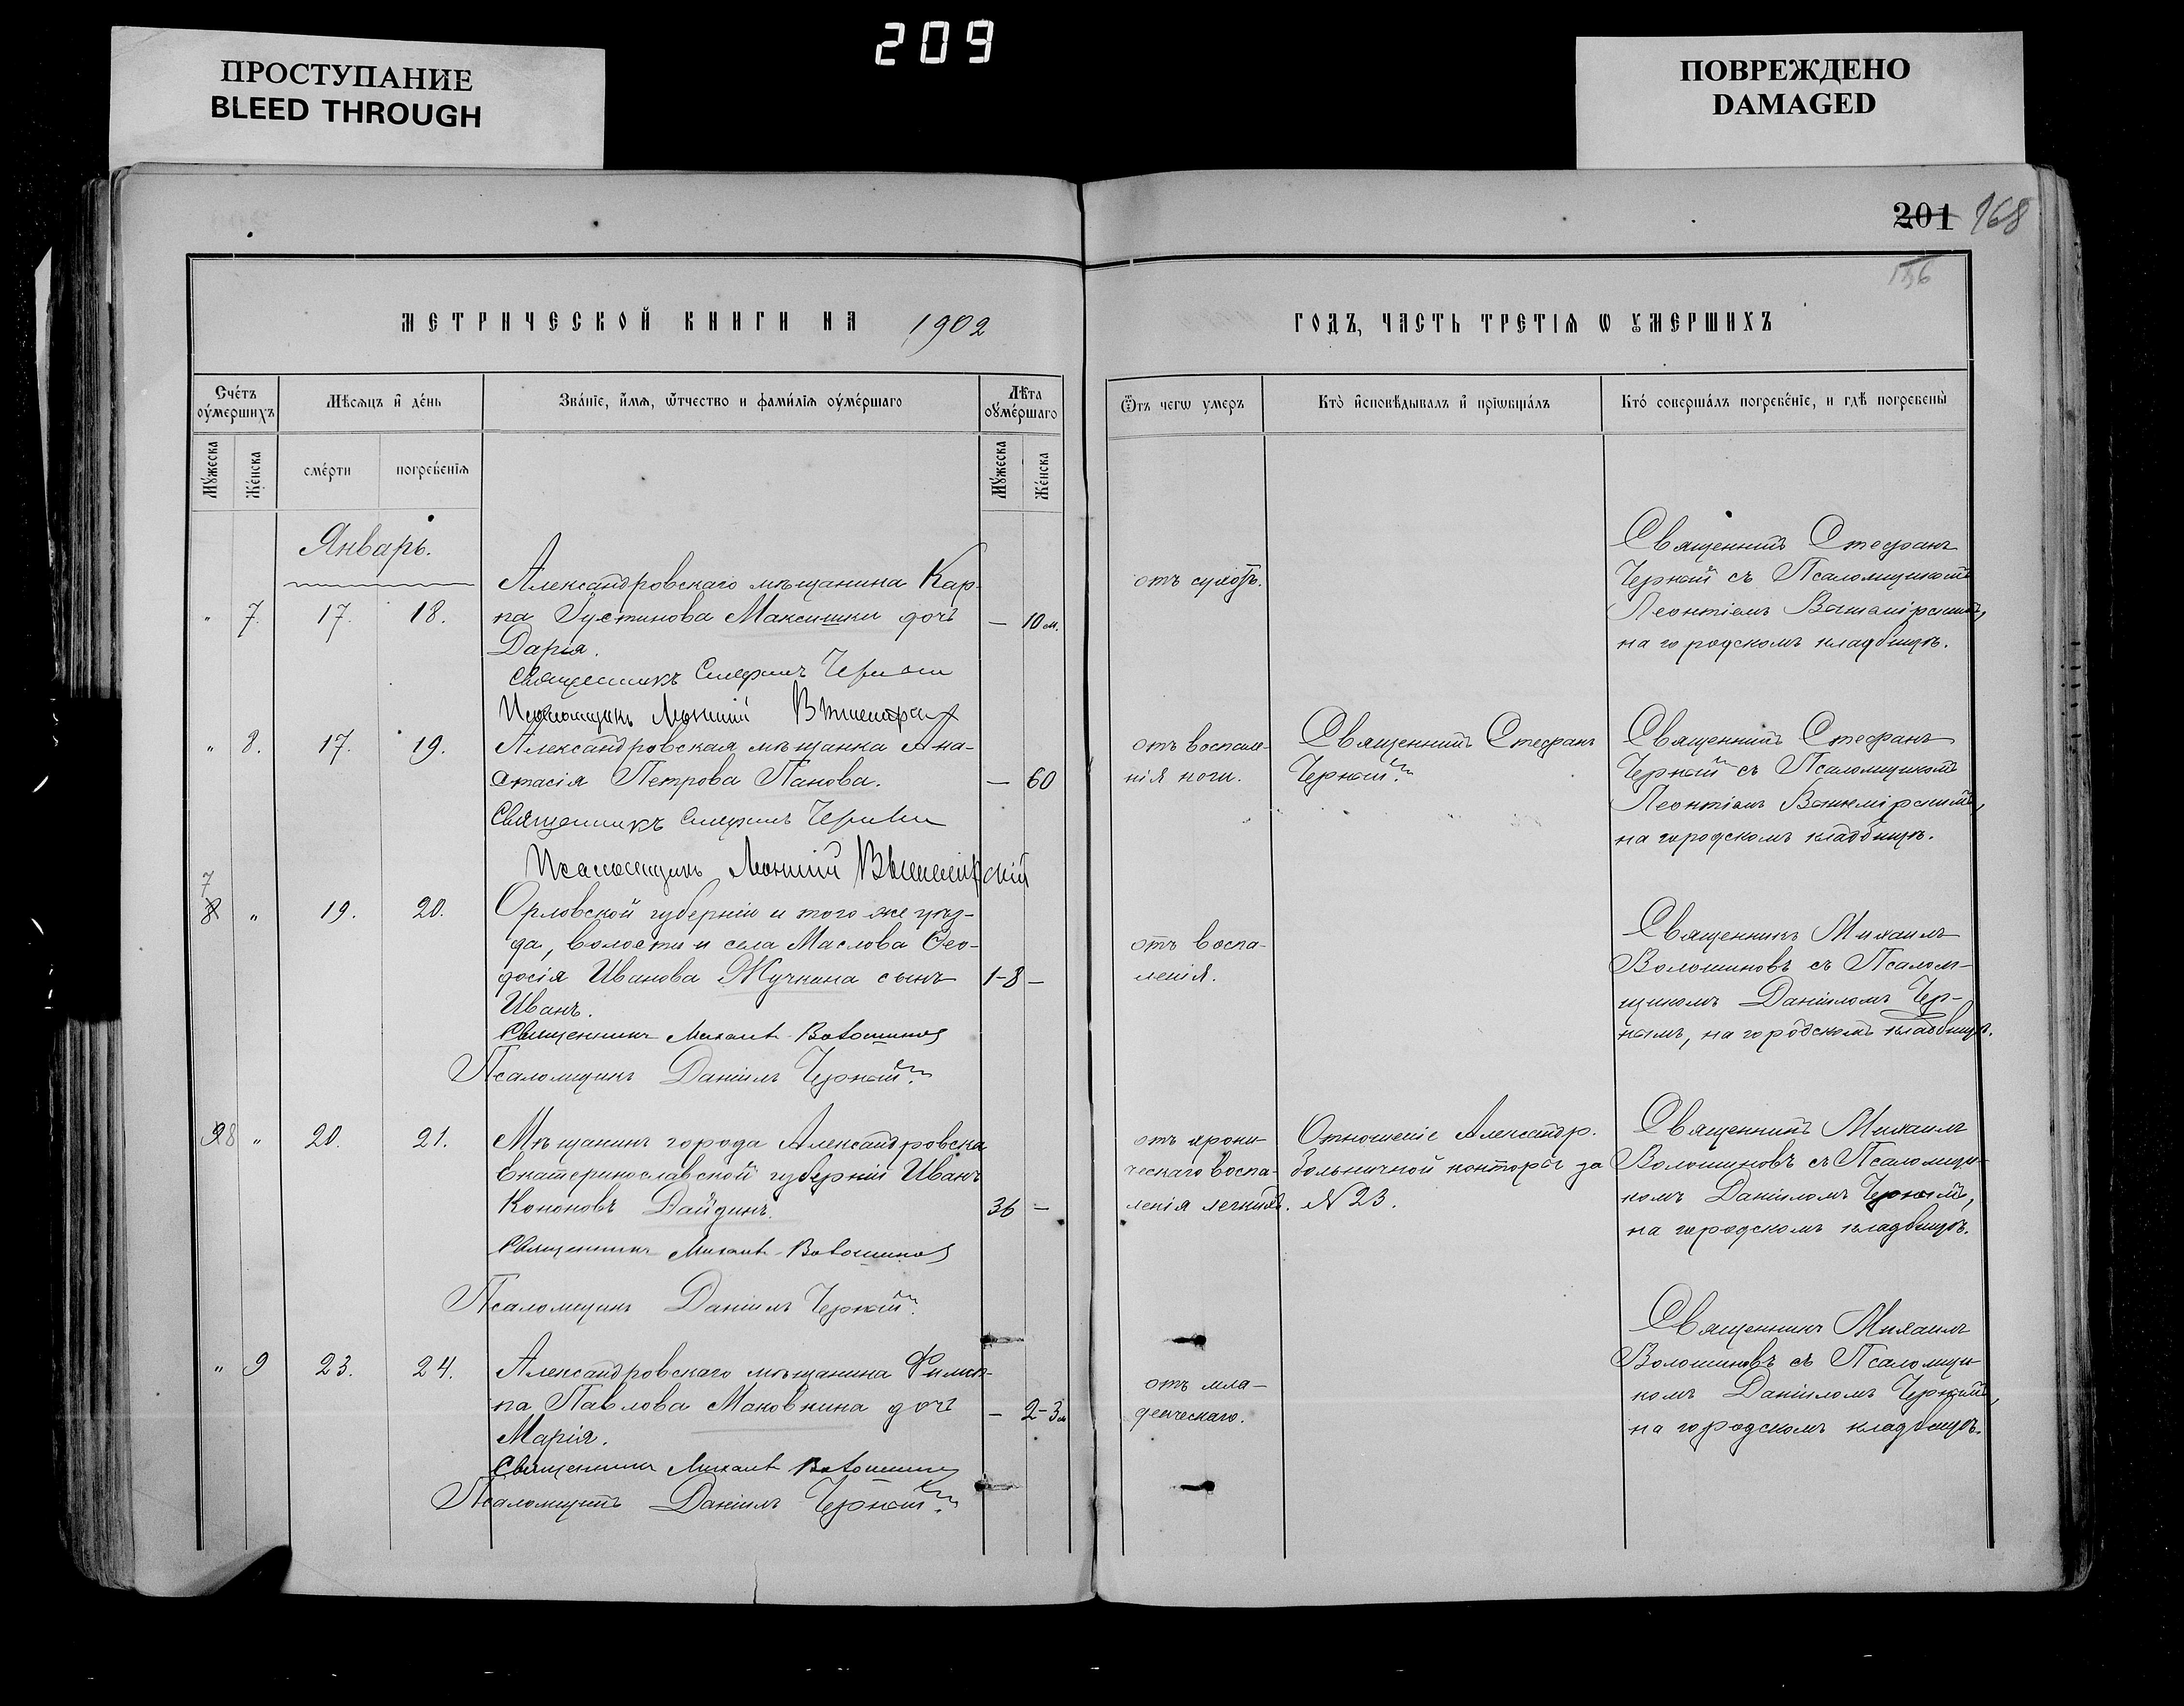 209
ПРОСТУПАНИЕ
BLEED THROUGH
ПОВРЕЖДЕНО
DAMAGED
201 168
МЕТРИЧЕСКОЙ КНИГИ НА 1902
ГОДЪ, ЧАСТЬ ТРЕТІѦ Ѡ УМЕРШИХЪ
Счетъ умершихъ
Мѣсяцъ и день
Званіе, имя, отчество и фамилія умершаго
Лѣта умершаго
Мужеска
Женска
смерти
погребенія
Мужеска
Женска
Отъ чегѡ умеръ
Кто исповѣдывалъ и пріѡбщалъ
Кто совершалъ погребеніе, и гдѣ погребены
Январь.
" 7. 17. 18.
Александровскаго мѣщанина Кар-
па Іустинова Максишки дочь
Дарія.
— 10 м.
отъ сухотъ.
Священникъ Стефанъ
Черный съ Псаломщикомъ
Леонтіемъ
на городскомъ кладбищѣ.
Священникъ Стефанъ Черный
Псаломщикъ Леонтій
" 8. 17. 19.
Александровская мѣщанка Ана-
стасія Петрова Панова.
— 60
отъ воспале-
нія ноги.
Священникъ Стефанъ
Черный.
Священникъ Стефанъ
Черный съ Псаломщикомъ
Леонтіемъ
на городскомъ кладбищѣ.
Священникъ Стефанъ Черный
Псаломщикъ Леонтій
7
8 " 19. 20.
Орловской губерніи и того же уѣз-
да, волости и села Маслова Ѳео-
досія Иванова Жучкина сынъ
Иванъ.
1-8 —
отъ воспа-
ленія.
Священникъ Михаилъ
Волошиновъ съ Псалом-
щикомъ Даніиломъ Чер-
нымъ, на городскомъ кладбищѣ.
Священникъ Михаилъ Волошиновъ
Псаломщикъ Даніилъ Черный.
98 " 20. 21.
Мѣщанинъ города Александровска
Екатеринославской губерніи Иванъ
Кононовъ Дайдинъ.
36 —
отъ крони-
ческаго воспа-
ленія легкихъ.
Отношеніе Александр.
больничной конторы за
№ 23.
Священникъ Михаилъ
Волошиновъ съ Псаломщи-
комъ Даніиломъ Чернымъ,
на городскомъ кладбищѣ.
Священникъ Михаилъ Волошиновъ
Псаломщикъ Даніилъ Черный.
" 9 23. 24.
Александровскаго мѣщанина Филип-
па Павлова Маковкина дочь
Марія.
— 2-3 м
отъ мла-
денческаго.
Священникъ Михаилъ
Волошиновъ съ Псаломщи-
комъ Даніиломъ Чернымъ,
на городскомъ кладбищѣ.
Священникъ Михаилъ Волошиновъ
Псаломщикъ Даніилъ Черный.